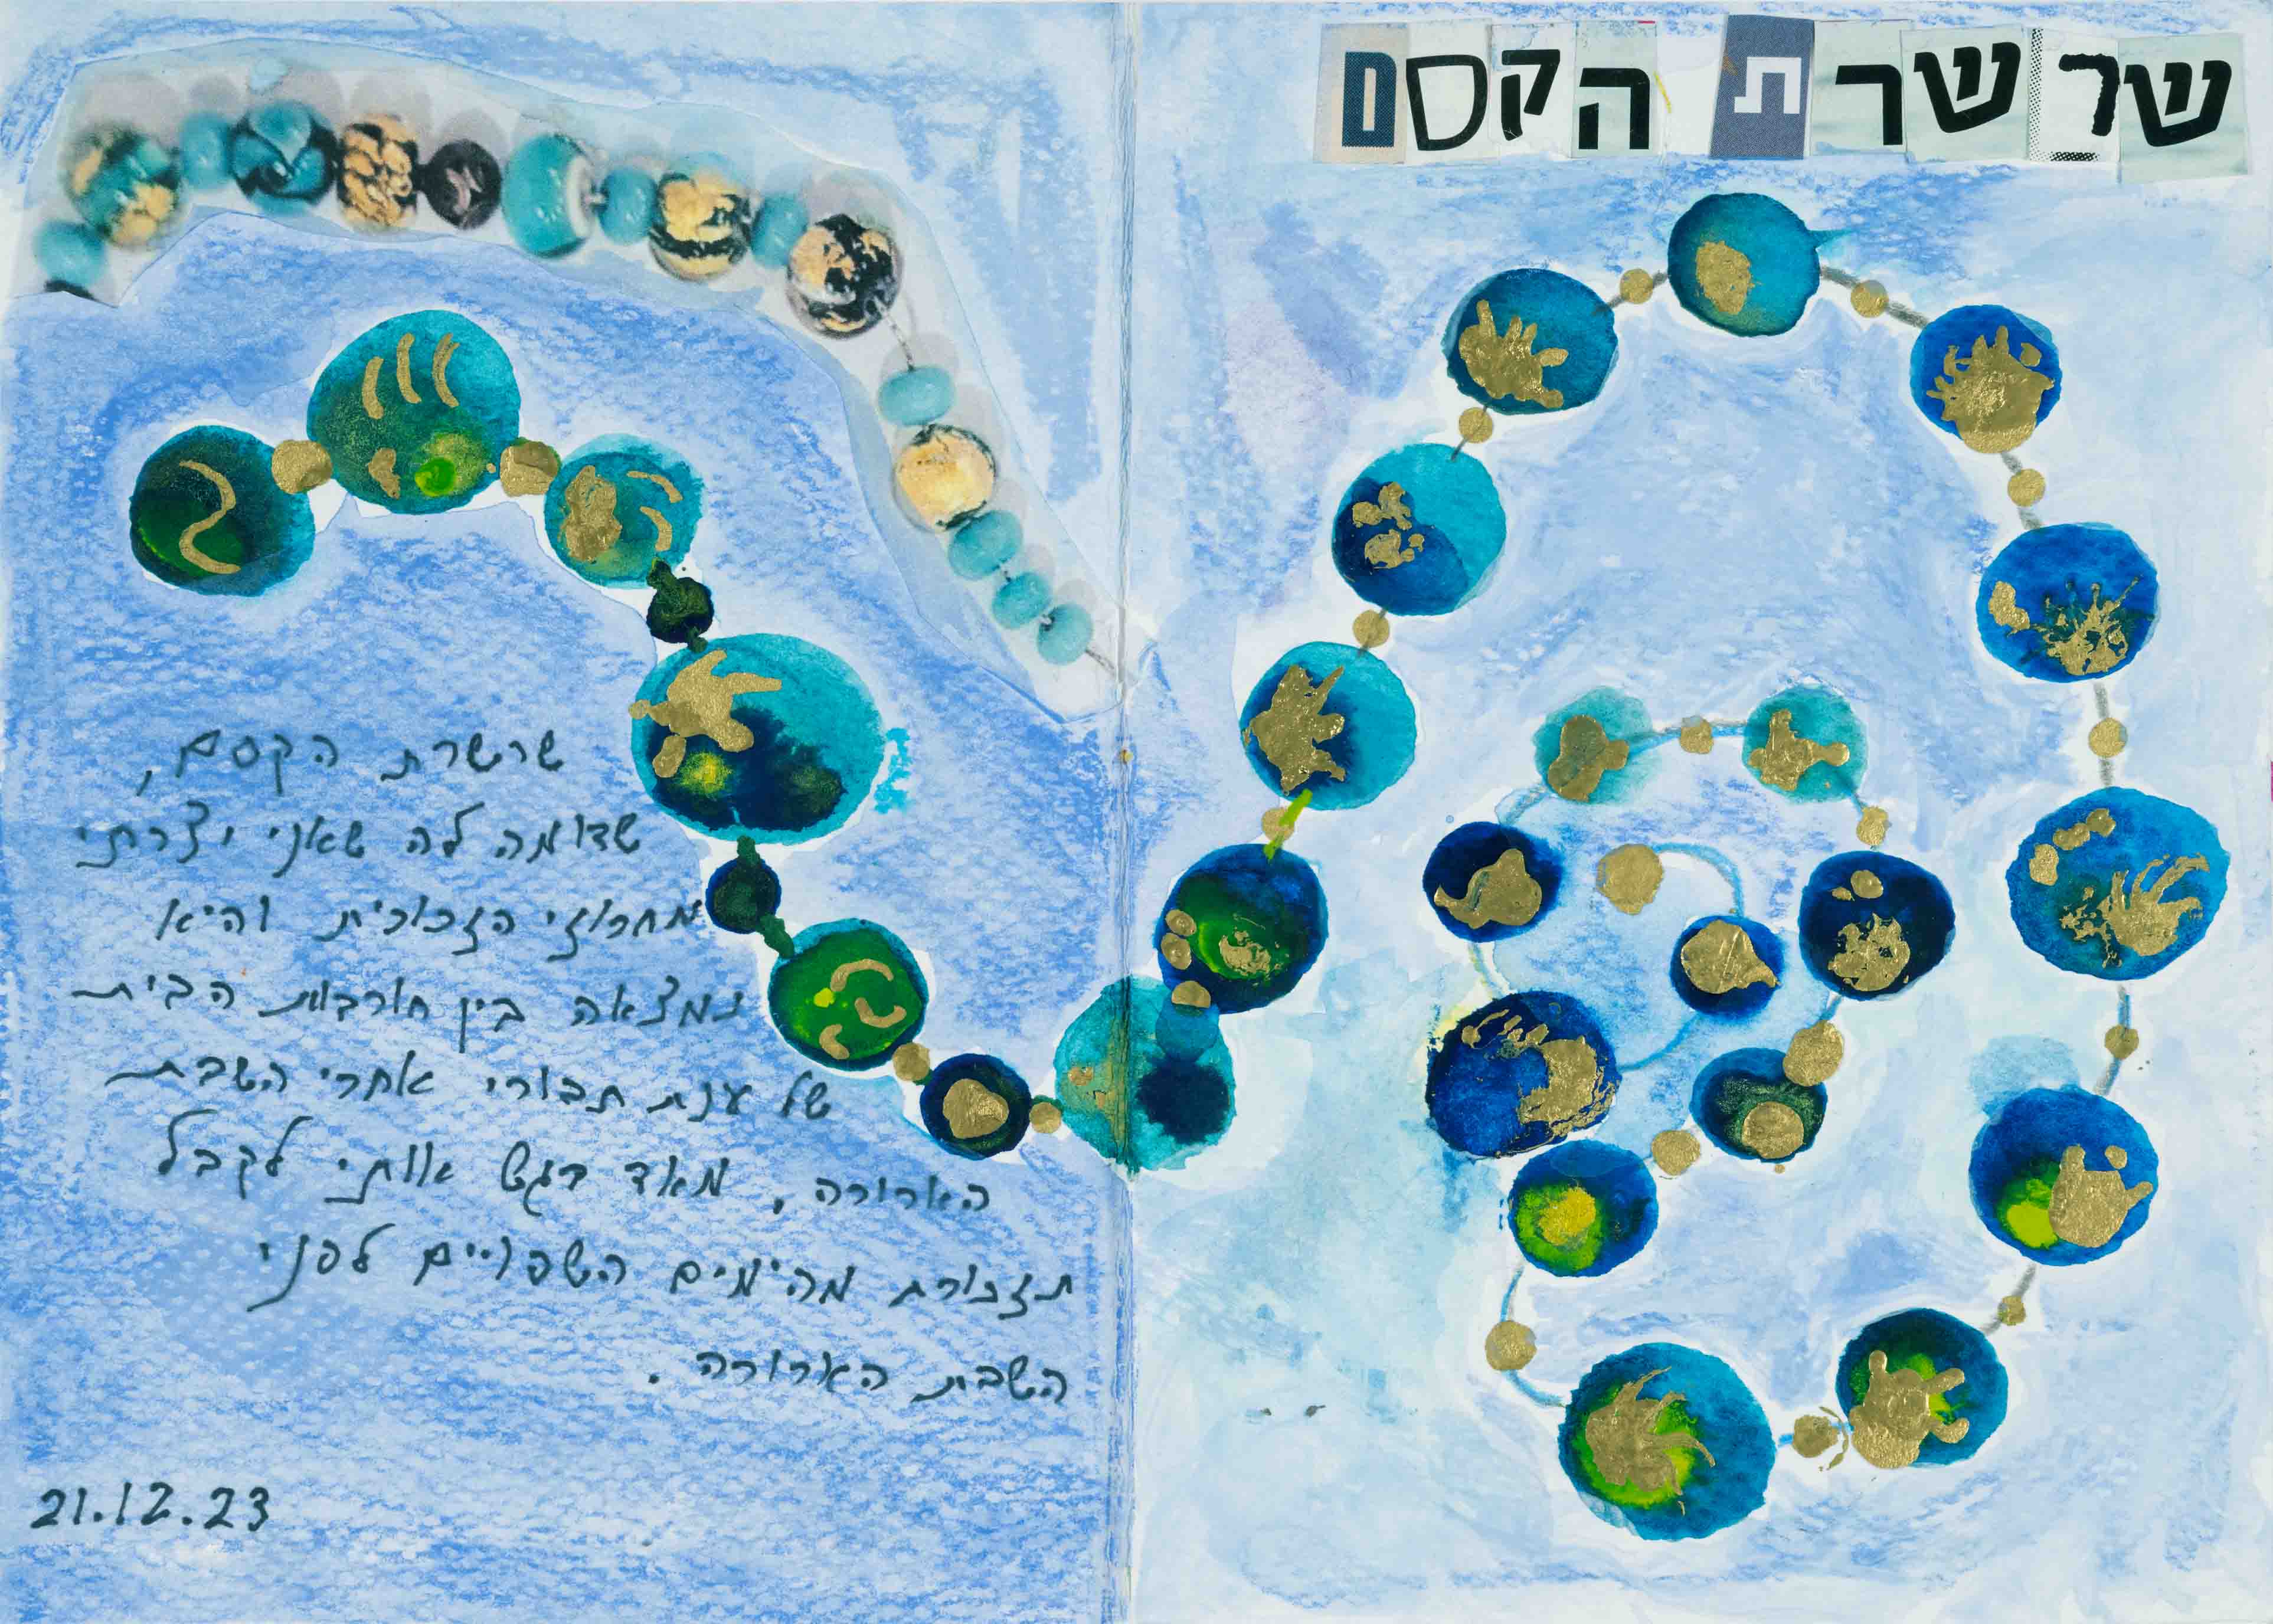 שרשרת הקסם
שרשרת הקסם,
שדומה לה שאני יצרתי
מחרוזי הזכוכית והיא
נמצאה בין חורבות הבית
של ענת תבורי אחרי השבת
הארורה. מאד רגש אותי לקבל
תזכורת מהימים השפויים לפני
השבת הארורה.
21.12.23